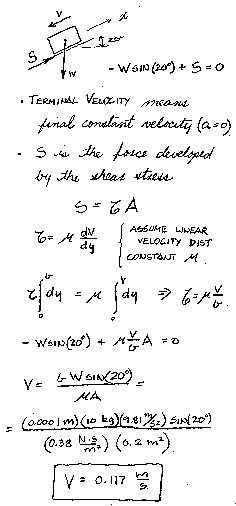 V
x
20°
S
W
- W SIN(20°) + S = 0
· TERMINAL VELOCITY means
final constant velocity (a=0)
· S is the force developed
by the shear stress
S = τA
τ = μ dV/dy { ASSUME LINEAR
VELOCITY DIST
CONSTANT μ.
τ∫₀ᵇ dy = μ ∫₀ᵛ dv ⇒ τ = μ V/b
- W SIN(20°) + μ V/b A = 0
V = b W SIN(20°) / μA =
= (0.0001 m)(10 kg)(9.81 m/s²) SIN(20°) / (0.38 N·S/m²)(0.2 m²)
V = 0.117 m/s